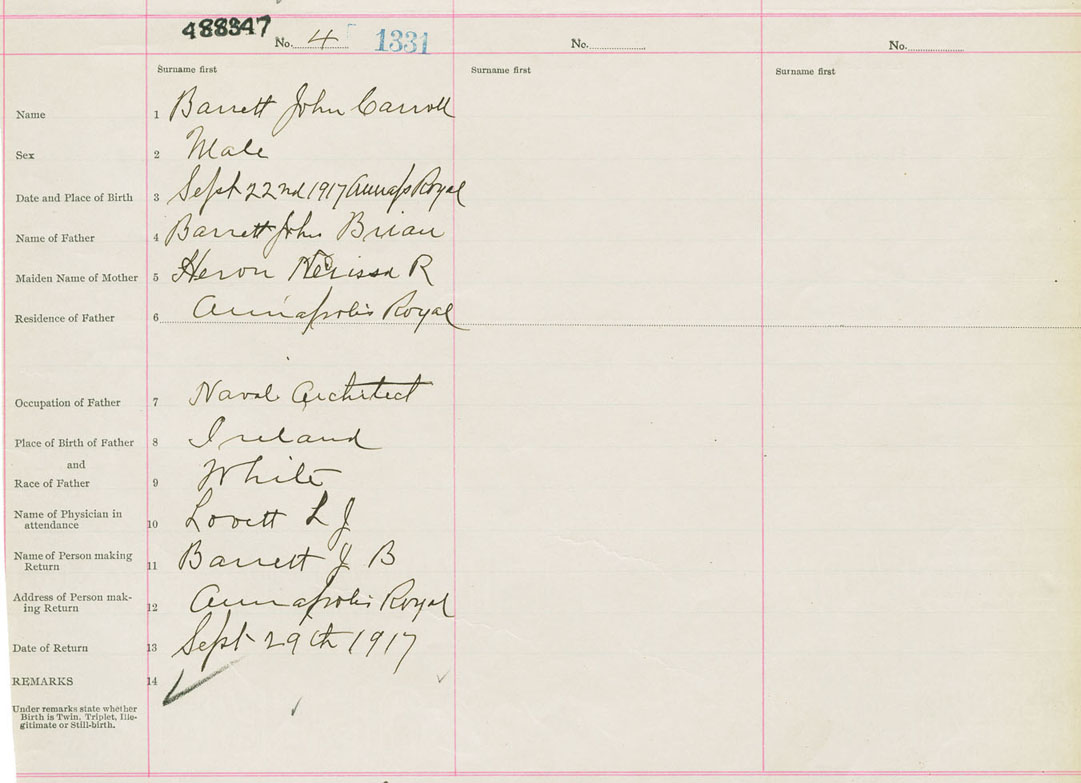 488347 No. 4 1331 No. No.
Surname first Surname first Surname first
Name 1 Barrett John Carroll
Sex 2 Male
Date and Place of Birth 3 Sept 22nd 1917 Annaps Royal
Name of Father 4 Barrett John Brian
Maiden Name of Mother 5 Heron Nerissa R
Residence of Father 6 Annapolis Royal
Occupation of Father 7 Naval Architect
Place of Birth of Father 8 Ireland
and
Race of Father 9 White
Name of Physician in
attendance 10 Lovett L J
Name of Person making
Return 11 Barrett J B
Address of Person mak-
ing Return 12 Annapolis Royal
Date of Return 13 Sept 29th 1917
REMARKS 14
Under remarks state whether
Birth is Twin, Triplet, Ille-
gitimate or Still-birth.